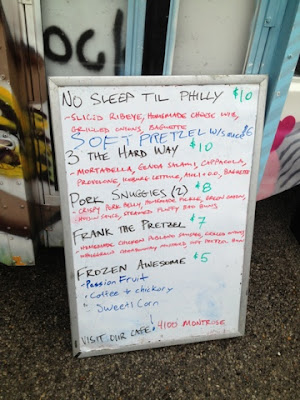 NO SLEEP TIL PHILLY $10
-SLICED RIBEYE, HOMEMADE CHEESE WIZ,
GRILLED ONIONS, BAGUETTE
SOFT PRETZEL W/SAUCE $6
3 THE HARD WAY $10
-MORTADELLA, GENOA SALAMI, CAPPACOLA,
PROVOLONE, ICEBERG LETTUCE, BAGUETTE
PORK SNUGGIES (2) $8
-CRISPY PORK BELLY, HOMEMADE PICKLE, GREEN ONION,
HOISIN SAUCE, STEAMED FLUFFY BAO BUNS
FRANK THE PRETZEL $7
-HOMEMADE CHICKEN POBLANO SAUSAGE, GRILLED ONIONS,
WHOLEGRAIN MUSTARD, HOT PRETZEL BUN
FROZEN AWESOME $5
-Passion Fruit
• Coffee & chickory
• Sweet Corn
VISIT OUR CAFE! 4100 MONTROSE